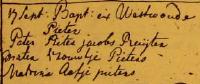 17 Sept: Bapt: ex Westwoude
Pieter
Pater Pieter jacobs
mater trouwtje Pieters
Matrina Aefje pieters